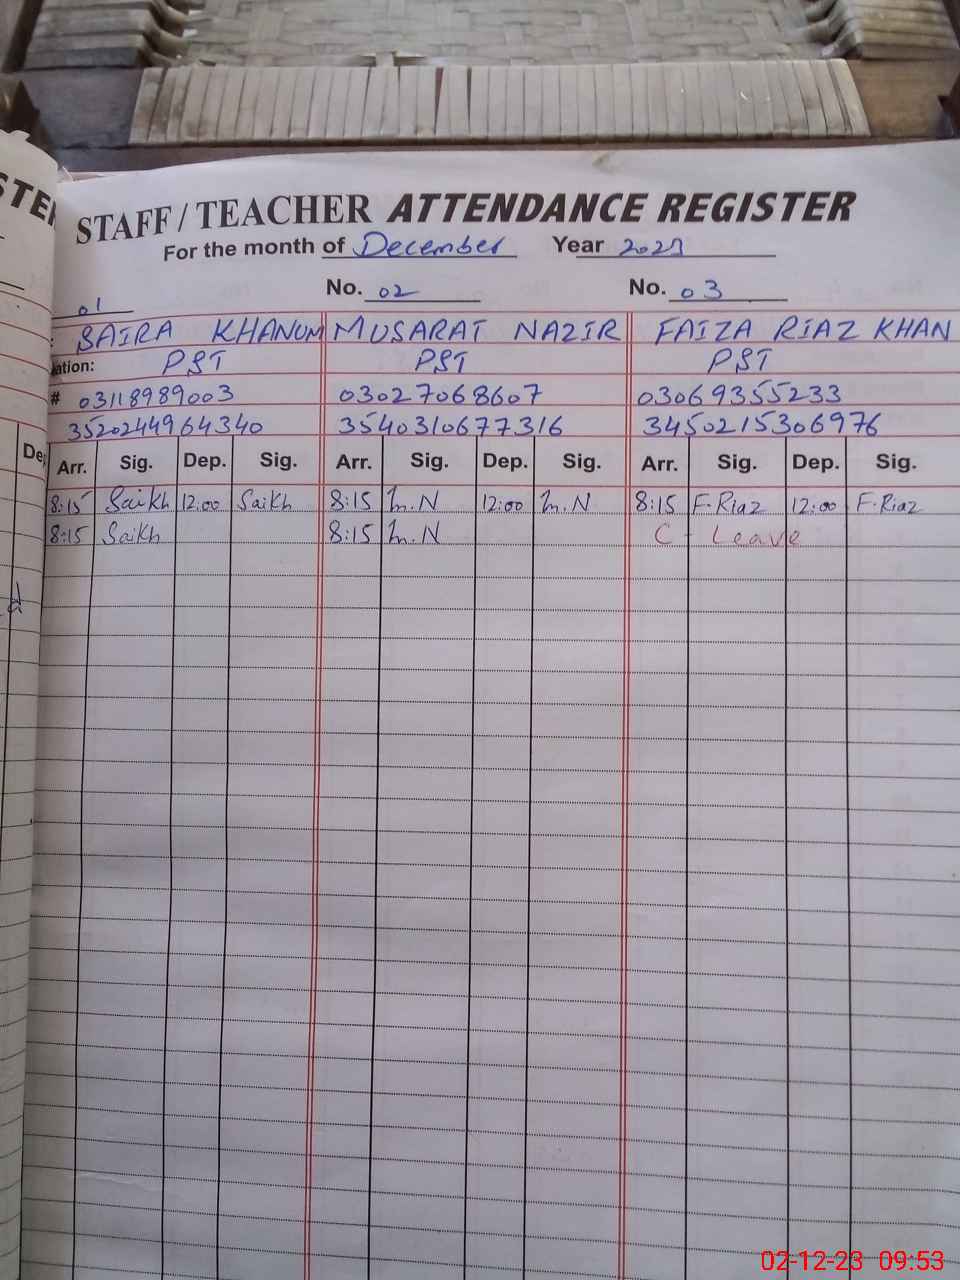 STAFF / TEACHER ATTENDANCE REGISTER
For the month of December Year 2023
01 No. 02 No. 03
SAIRA KHANUM MUSARAT NAZIR FAIZA RIAZ KHAN
ation: PST PST PST
# 03118989003 03027068607 03069355233
3520244964340 3540310677316 3450215306976
Arr. Sig. Dep. Sig. Arr. Sig. Dep. Sig. Arr. Sig. Dep. Sig.
8:15 Saikh 12:00 Saikh 8:15 M.N 12:00 M.N 8:15 F.Riaz 12:00 F.Riaz
8:15 Saikh 8:15 M.N C - Leave
02-12-23 09:53